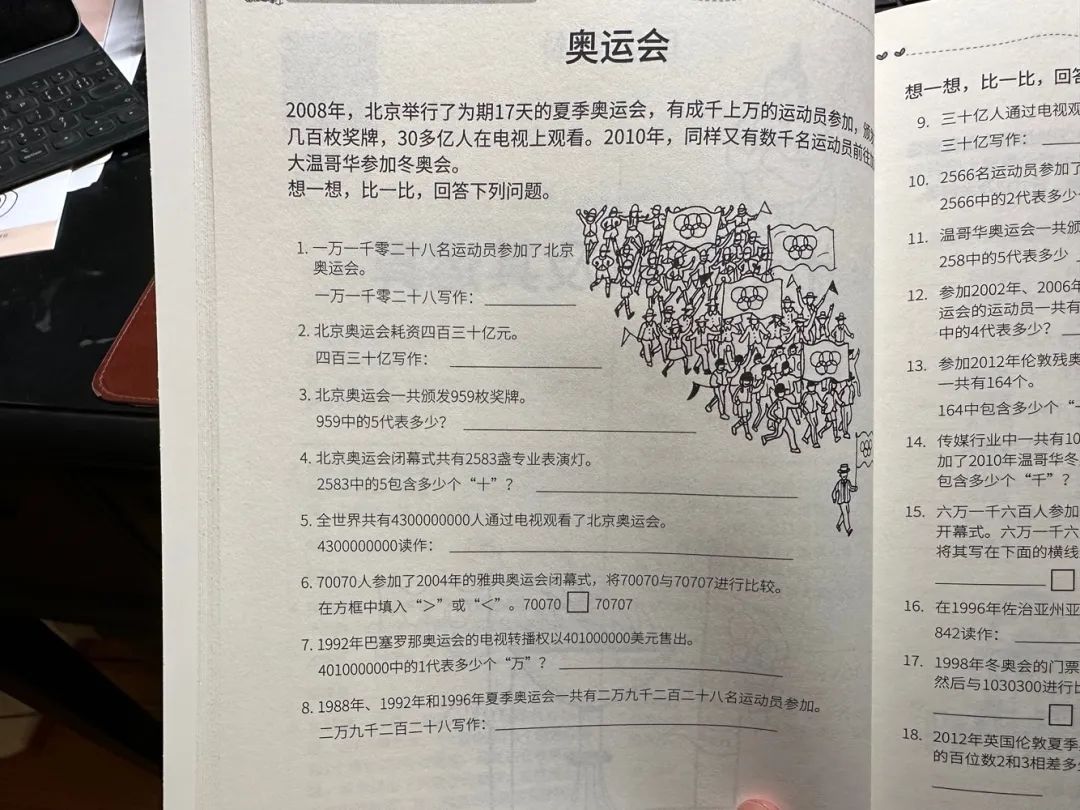 奥运会
2008年，北京举行了为期17天的夏季奥运会，有成千上万的运动员参加，颁发
几百枚奖牌，30多亿人在电视上观看。2010年，同样又有数千名运动员前往加
大温哥华参加冬奥会。
想一想，比一比，回答下列问题。
1. 一万一千零二十八名运动员参加了北京
奥运会。
一万一千零二十八写作：
2. 北京奥运会耗资四百三十亿元。
四百三十亿写作：
3. 北京奥运会一共颁发959枚奖牌。
959中的5代表多少？
4. 北京奥运会闭幕式共有2583盏专业表演灯。
2583中的5包含多少个“十”？
5. 全世界共有4300000000人通过电视观看了北京奥运会。
4300000000读作：
6. 70070人参加了2004年的雅典奥运会闭幕式，将70070与70707进行比较。
在方框中填入“＞”或“＜”。70070 □ 70707
7. 1992年巴塞罗那奥运会的电视转播权以401000000美元售出。
401000000中的1代表多少个“万”？
8. 1988年、1992年和1996年夏季奥运会一共有二万九千二百二十八名运动员参加。
二万九千二百二十八写作：
想一想，比一比，回答
9. 三十亿人通过电视观
三十亿写作：
10. 2566名运动员参加了
2566中的2代表多少
11. 温哥华奥运会一共颁
258中的5代表多少
12. 参加2002年、2006年
运会的运动员一共有
中的4代表多少？
13. 参加2012年伦敦残奥
一共有164个。
164中包含多少个“
14. 传媒行业中一共有10
加了2010年温哥华冬
包含多少个“千”？
15. 六万一千六百人参加
开幕式。六万一千六
将其写在下面的横线
□
16. 在1996年佐治亚州亚
842读作：
17. 1998年冬奥会的门票
然后与1030300进行比
□
18. 2012年英国伦敦夏季
的百位数2和3相差多